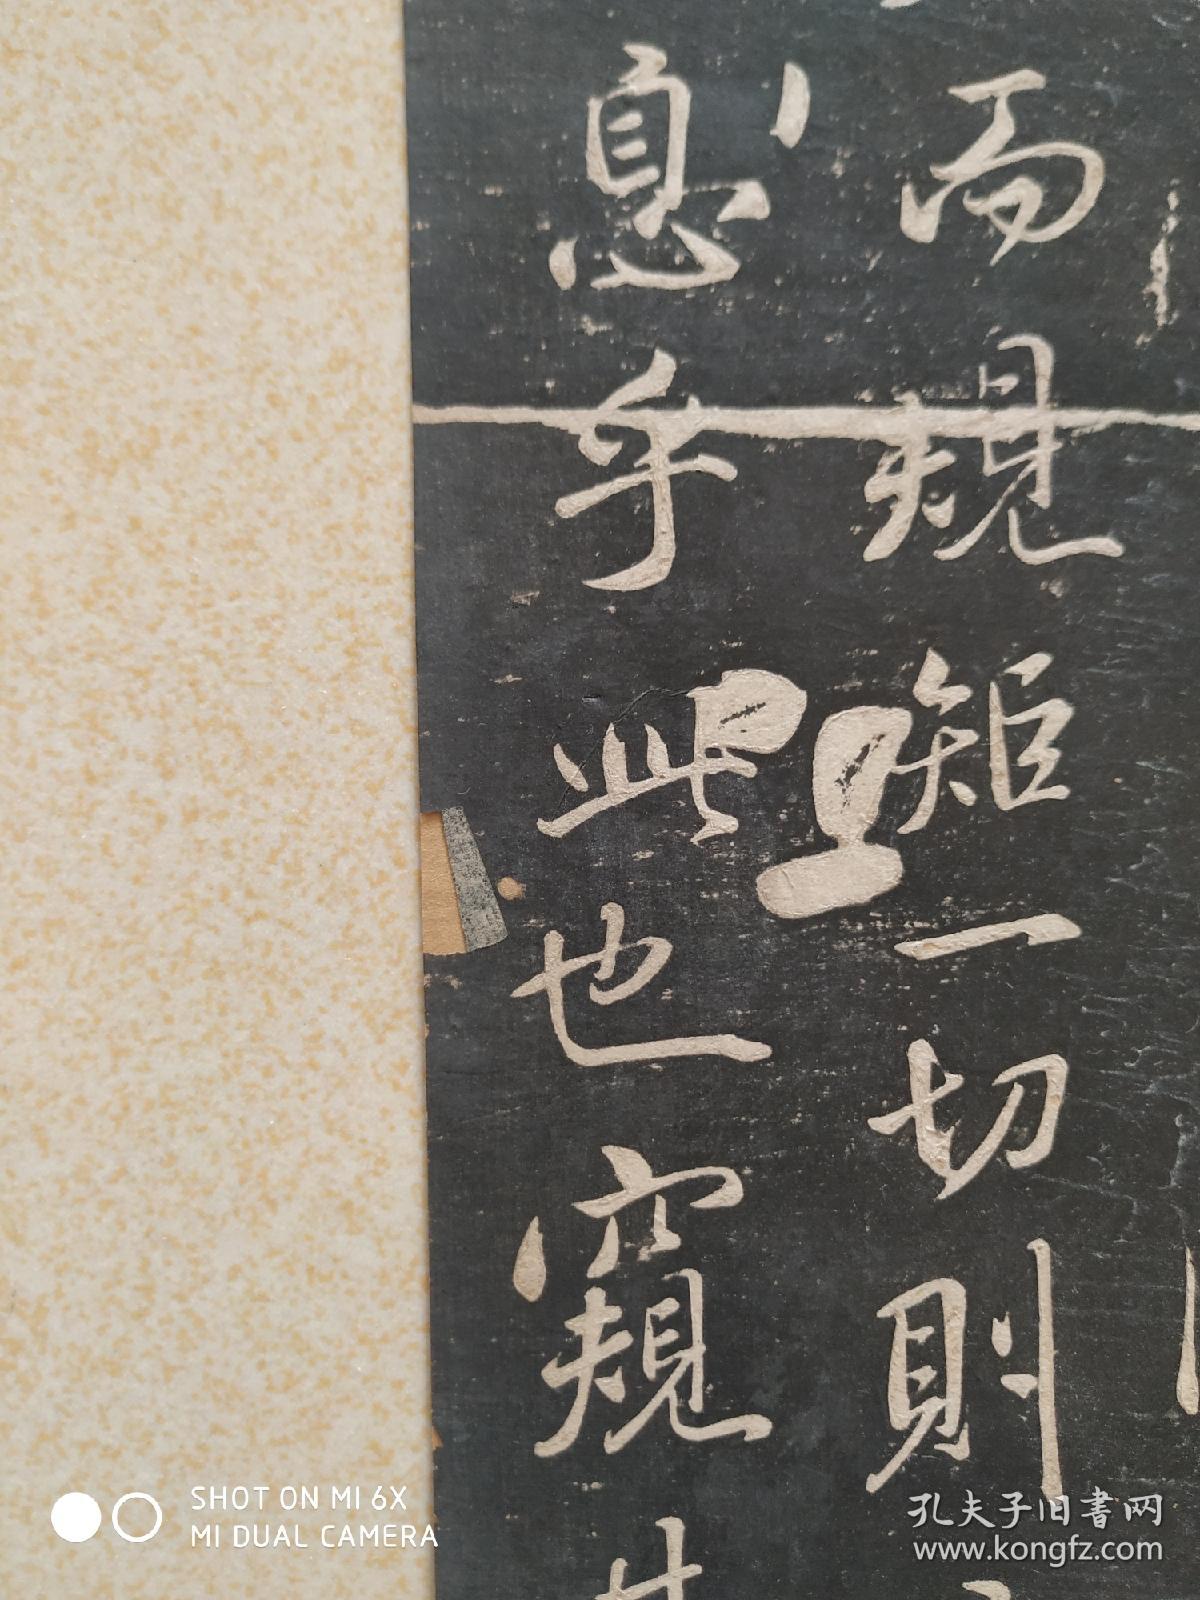 而規矩一切則
息乎此也窺
SHOT ON MI 6X
MI DUAL CAMERA
孔夫子旧書网
www.kongfz.com